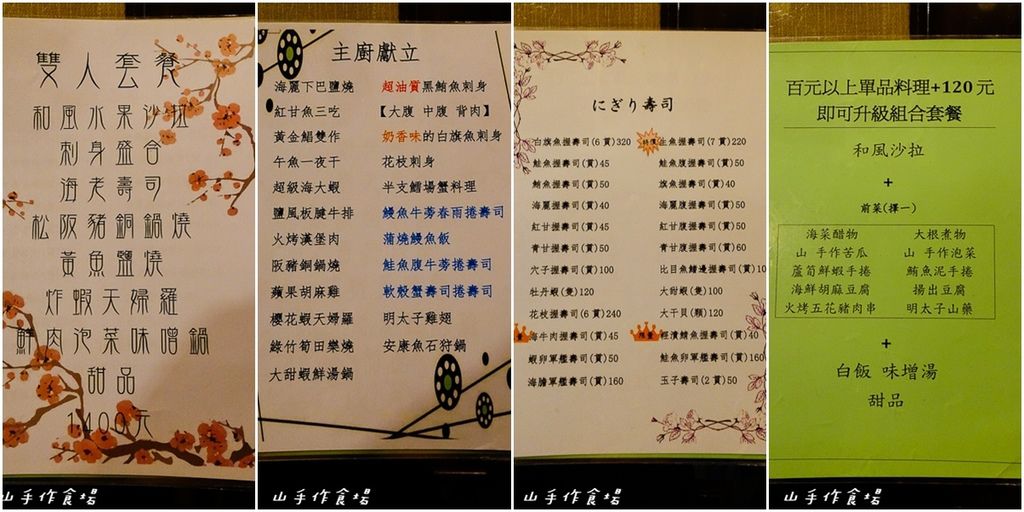 雙人套餐
和風水果沙拉
刺身盛合
海老壽司
松阪豬銅鍋燒
黃魚鹽燒
炸蝦天婦羅
鮮肉泡菜味噌鍋
甜品
1400元
山手作食場
主廚獻立
海麗下巴鹽燒 超油質黑鮪魚刺身
紅甘魚三吃 【大腹 中腹 背肉】
黃金鯧雙作 奶香味的白旗魚刺身
午魚一夜干 花枝刺身
超級海大蝦 半支鱈場蟹料理
鹽風板腱牛排 鰻魚牛蒡春雨捲壽司
火烤漢堡肉 蒲燒鰻魚飯
阪豬銅鍋燒 鮭魚腹牛蒡捲壽司
蘋果胡麻雞 軟殼蟹壽司捲壽司
櫻花蝦天婦羅 明太子雞翅
綠竹筍田樂燒 安康魚石狩鍋
大甜蝦鮮湯鍋
山手作食場
にぎり壽司
白旗魚握壽司(6貫)320 特價 生魚握壽司(7貫)220
鮭魚握壽司(貫)45 鮭魚腹握壽司(貫)50
鮪魚握壽司(貫)50 旗魚握壽司(貫)40
海麗握壽司(貫)40 海麗腹握壽司(貫)50
紅甘握壽司(貫)45 紅甘腹握壽司(貫)50
青甘握壽司(貫)50 青甘腹握壽司(貫)60
穴子握壽司(貫)100 比目魚鰭邊握壽司(貫)10
牡丹蝦(隻)120 大甜蝦(隻)100
花枝握壽司(6貫)240 大干貝(顆)120
海牛肉握壽司(貫)45 輕漬鮪魚握壽司(貫)90
蝦卵軍艦壽司(貫)50 鮭魚卵軍艦壽司(貫)160
海膽軍艦壽司(貫)160 玉子壽司(2貫)50
山手作食場
百元以上單品料理+120元
即可升級組合套餐
和風沙拉
+
前菜(擇一)
海菜醋物 大根煮物
山 手作苦瓜 山 手作泡菜
蘆筍鮮蝦手捲 鮪魚泥手捲
海鮮胡麻豆腐 揚出豆腐
火烤五花豬肉串 明太子山藥
+
白飯 味增湯
甜品
山手作食場